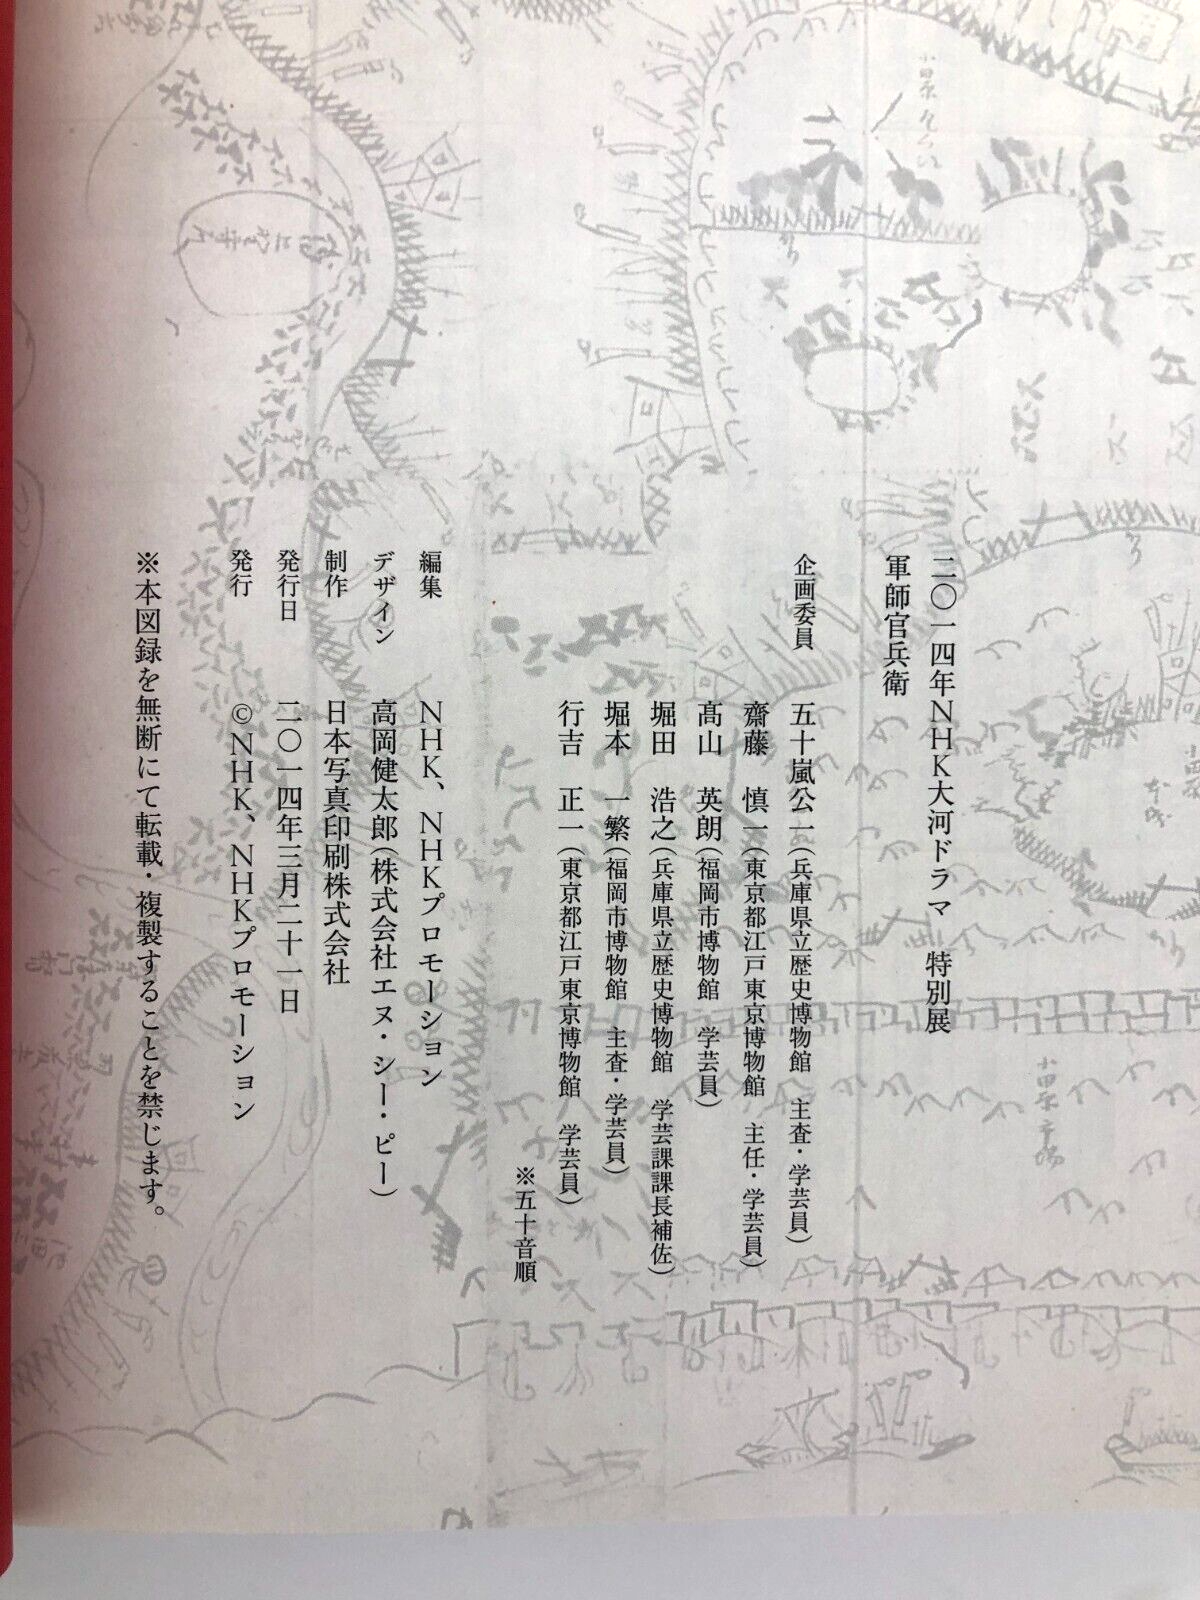 二〇一四年NHK大河ドラマ 特別展
軍師官兵衛
企画委員 五十嵐公一(兵庫県立歴史博物館 主査・学芸員)
齋藤 慎一(東京都江戸東京博物館 主任・学芸員)
髙山 英朗(福岡市博物館 学芸員)
堀田 浩之(兵庫県立歴史博物館 学芸課課長補佐)
堀本 一繁(福岡市博物館 主査・学芸員)
行吉 正一(東京都江戸東京博物館 学芸員)
※五十音順
編集 NHK、NHKプロモーション
デザイン 高岡健太郎(株式会社エヌ・シー・ピー)
制作 日本写真印刷株式会社
発行日 二〇一四年三月二十一日
発行 ©NHK、NHKプロモーション
※本図録を無断にて転載・複製することを禁じます。